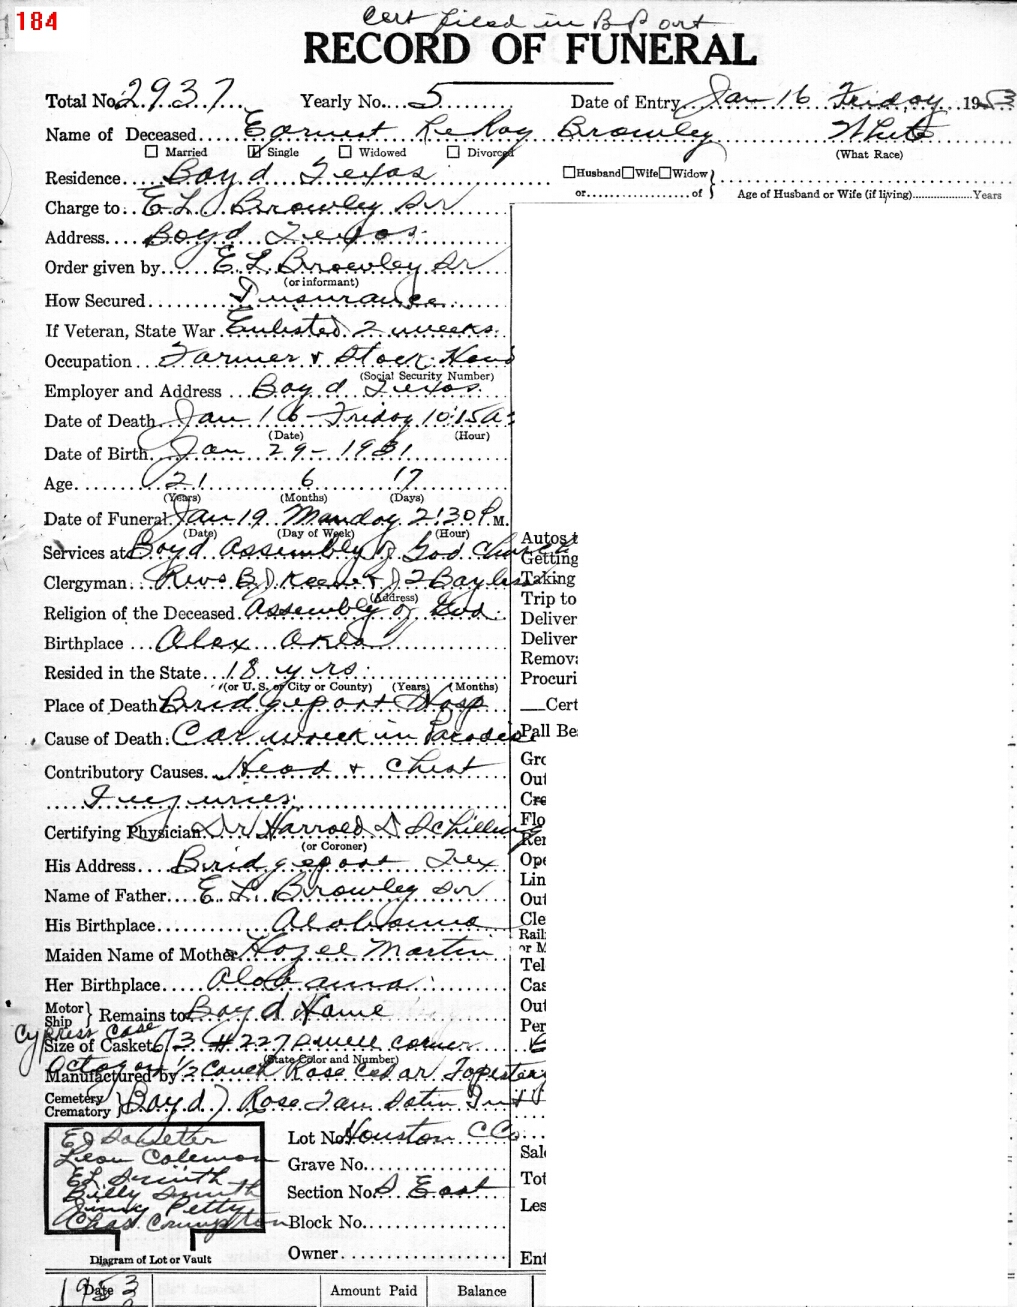 184
Cert filed in B Port
RECORD OF FUNERAL
Total No. 2937 Yearly No. 5 Date of Entry Jan 16 Friday 1953
Name of Deceased Earnest LeRoy Browley White
Married Single Widowed Divorced (What Race)
Residence Boyd Texas Husband Wife Widow
or of Age of Husband or Wife (if living) Years
Charge to E L Browley Sr
Address Boyd Texas
Order given by E L Browley Sr
(or informant)
How Secured Insurance
If Veteran, State War Enlisted 2 weeks
Occupation Farmer & Stock
(Social Security Number)
Employer and Address Boyd Texas
Date of Death Jan 16 - Friday 10:15 A
(Date) (Hour)
Date of Birth Jan 29 - 1931
Age 21 6 17
(Years) (Months) (Days)
Date of Funeral Jan 19 Monday 2:30 P. M.
(Date) (Day of Week) (Hour)
Services at Boyd Assembly of God Church
Clergyman Revs B J Keener & J
(Address)
Religion of the Deceased Assembly of God
Birthplace Alex Okla
Resided in the State 18 yrs.
(or U. S. or City or County) (Years) (Months)
Place of Death Bridgeport Hosp
Cause of Death Car wreck in Paradise
Contributory Causes Head & Chest
Injuries
Certifying Physician Dr Harrold D Schilling
(or Coroner)
His Address Bridgeport Tex
Name of Father E. L. Browley Sr
His Birthplace Alabama
Maiden Name of Mother Hazel Martin
Her Birthplace Alabama
Motor Ship Remains to Boyd Home
Cypress Case
Size of Casket 6/3 #227 swell corner
(State Color and Number)
Octagon 1/2 Couch Rose Cedar
Manufactured by
Cemetery Crematory Boyd Rose Tan Satin Int
Lot No. Houston C Co
Grave No.
Section No. S East
Block No.
Owner
Leon Coleman
E L Smith
Billy Smith
Jimmy Petty
Chas Crumpton
Diagram of Lot or Vault
Autos
Getting
Taking
Trip to
Deliver
Deliver
Remova
Procuri
Cert
Pall Be
Gro
Out
Cre
Flo
Ren
Ope
Lin
Out
Cle
Rail
or M
Tel
Cas
Out
Per
Sal
Tot
Les
Ent
1953
Date Amount Paid Balance